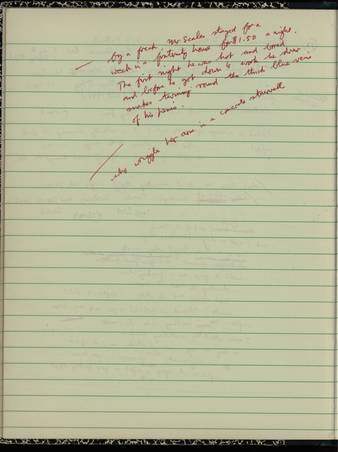 by a freak, Mr Scales stayed for a
week in a fraternity house for $1.50 a night.
The first night he was hot and bored
and before he got down to work he drew
snakes twining round the thick blue vein
of his penis.
who wriggle her arse in a concrete